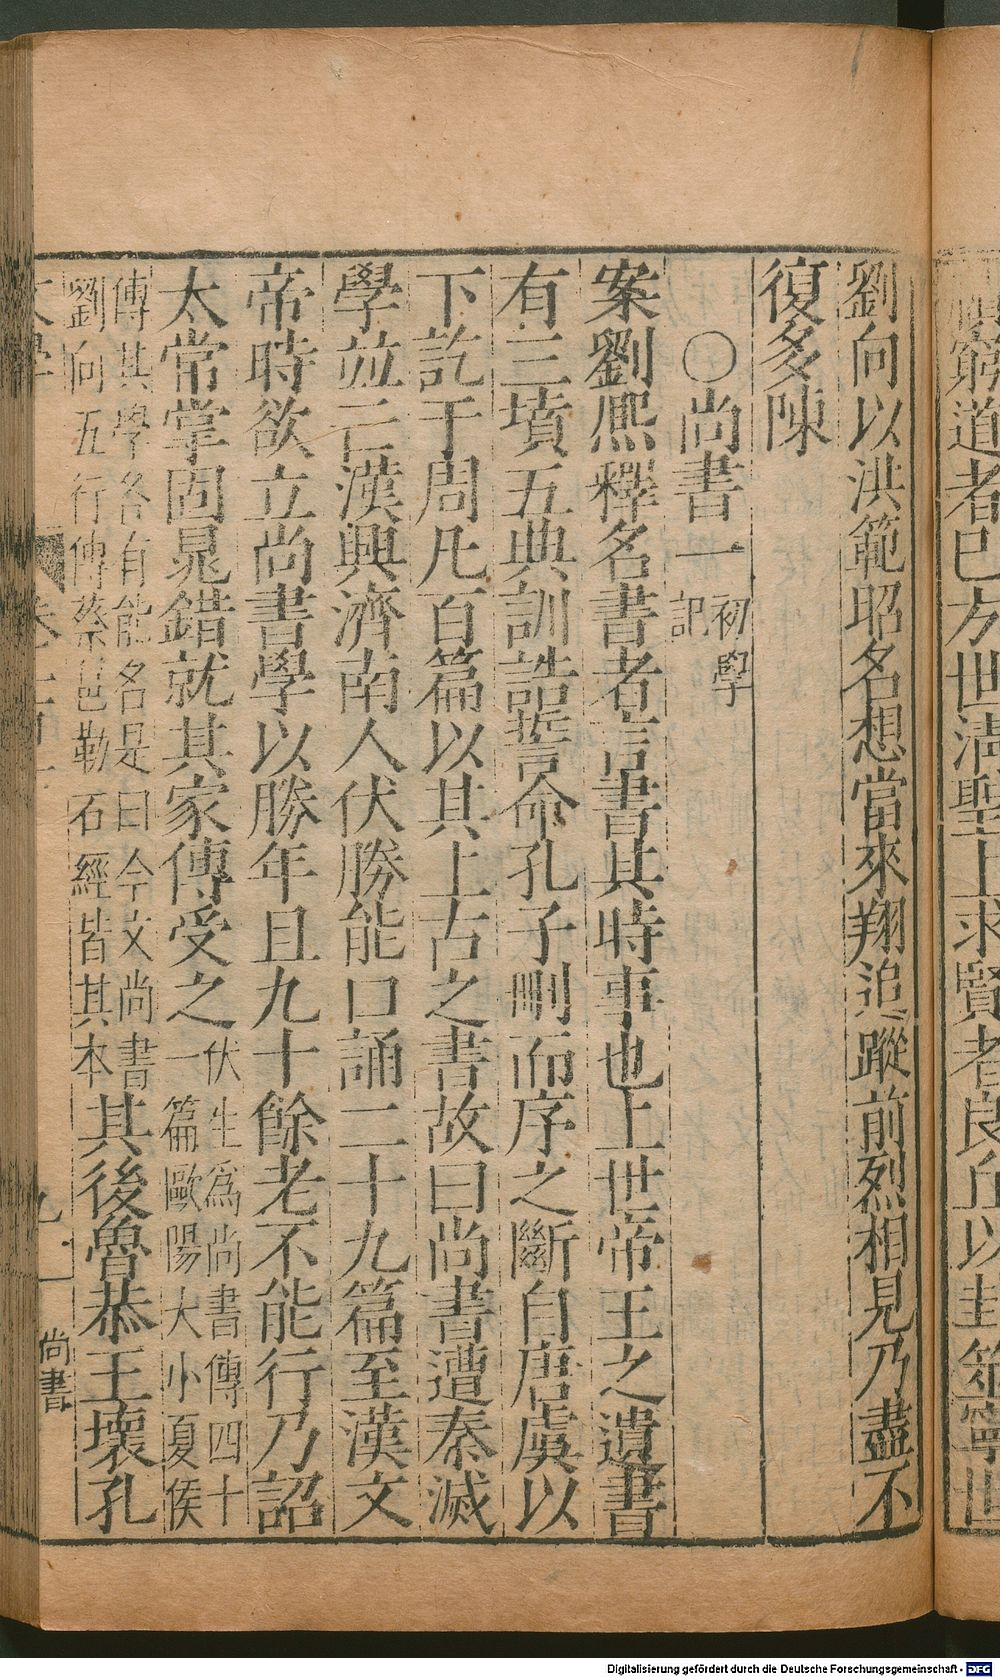 窮道者巳方世清聖上求賢者良丘以卦筮寧世
劉向以洪範昭名想當來翔追蹤前烈相見乃盡不
復多陳
○尚書一初學記
案劉熈釋名書者言書其時事也上世帝王之遺書
有三墳五典訓誥誓命孔子刪而序之斷自唐虞以
下訖于周凡百篇以其上古之書故曰尚書遭秦滅
學並亡漢興濟南人伏勝能口誦二十九篇至漢文
帝時欲立尚書學以勝年且九十餘老不能行乃詔
太常掌固晁錯就其家傳受之伏生爲尚書傳四十一篇歐陽大小夏侯
傳其學各有能名是曰今文尚書劉向五行傳蔡邕勒石經皆其本其後魯恭王壞孔
尚書
Digitalisierung gefördert durch die Deutsche Forschungsgemeinschaft - DFG